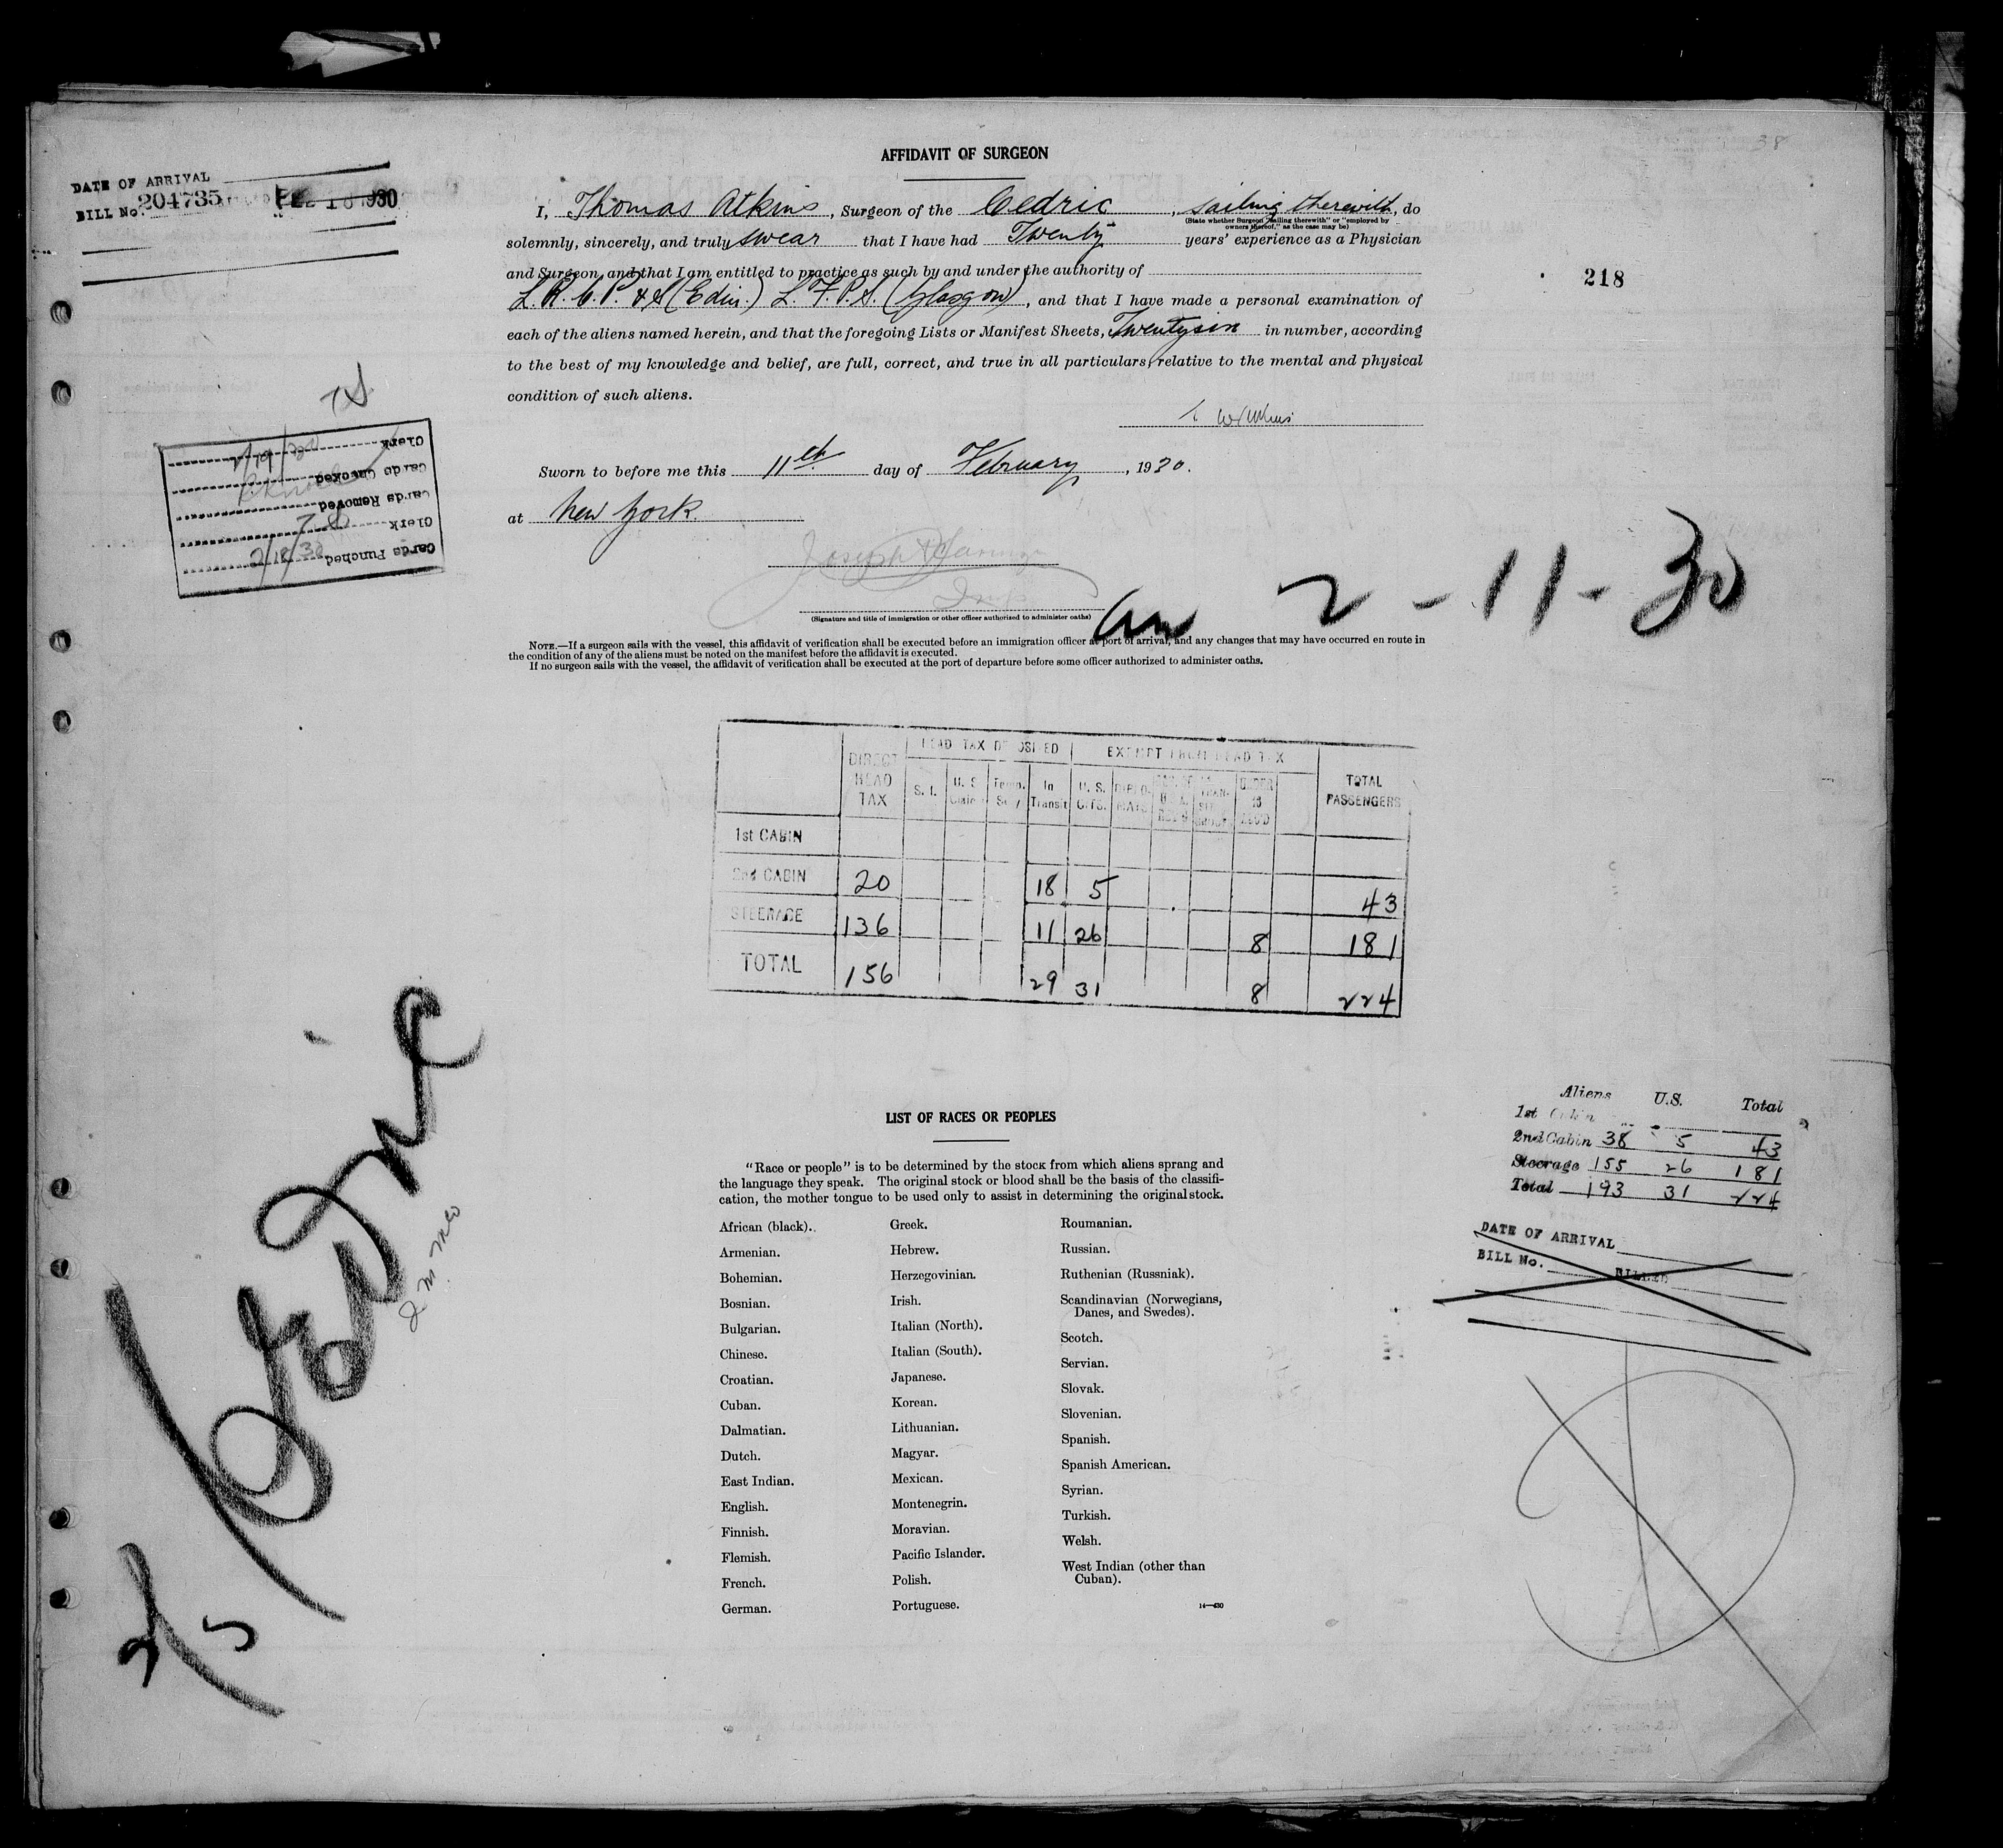 38
AFFIDAVIT OF SURGEON
DATE OF ARRIVAL
BILL No. 204735 1930
I, Thomas Atkins, Surgeon of the Cedric, sailing therewith, do
(State whether Surgeon "sailing therewith" or "employed by
owners thereof," as the case may be)
solemnly, sincerely, and truly swear that I have had Twenty years' experience as a Physician
and Surgeon, and that I am entitled to practice as such by and under the authority of
L.R.C.P. & S (Edin.) L.F.P.S. (Glasgow), and that I have made a personal examination of
218
each of the aliens named herein, and that the foregoing Lists or Manifest Sheets, Twentysix in number, according
to the best of my knowledge and belief, are full, correct, and true in all particulars, relative to the mental and physical
condition of such aliens.
Sworn to before me this 11th day of February, 1930.
at New York
Cards Punched 2/18/30
Clerk
Cards Removed
Cards Checked
Clerk
2-11-30
(Signature and title of immigration or other officer authorized to administer oaths)
NOTE.—If a surgeon sails with the vessel, this affidavit of verification shall be executed before an immigration officer at port of arrival, and any changes that may have occurred en route in
the condition of any of the aliens must be noted on the manifest before the affidavit is executed.
If no surgeon sails with the vessel, the affidavit of verification shall be executed at the port of departure before some officer authorized to administer oaths.
DIRECT HEAD TAX HEAD TAX DEPOSITED EXEMPT FROM HEAD TAX TOTAL PASSENGERS
S. I. U. S. In Transit U. S. UNDER 16
1st CABIN
2nd CABIN 20 18 5 43
STEERAGE 136 11 26 8 181
TOTAL 156 29 31 8 224
Cedric
Aliens U.S. Total
1st Cabin
2nd Cabin 38 5 43
Steerage 155 26 181
Total 193 31 224
DATE OF ARRIVAL
BILL No. BILLED
LIST OF RACES OR PEOPLES
"Race or people" is to be determined by the stock from which aliens sprang and
the language they speak. The original stock or blood shall be the basis of the classifi-
cation, the mother tongue to be used only to assist in determining the original stock.
African (black).
Armenian.
Bohemian.
Bosnian.
Bulgarian.
Chinese.
Croatian.
Cuban.
Dalmatian.
Dutch.
East Indian.
English.
Finnish.
Flemish.
French.
German.
Greek.
Hebrew.
Herzegovinian.
Irish.
Italian (North).
Italian (South).
Japanese.
Korean.
Lithuanian.
Magyar.
Mexican.
Montenegrin.
Moravian.
Pacific Islander.
Polish.
Portuguese.
Roumanian.
Russian.
Ruthenian (Russniak).
Scandinavian (Norwegians,
Danes, and Swedes).
Scotch.
Servian.
Slovak.
Slovenian.
Spanish.
Spanish American.
Syrian.
Turkish.
Welsh.
West Indian (other than
Cuban).